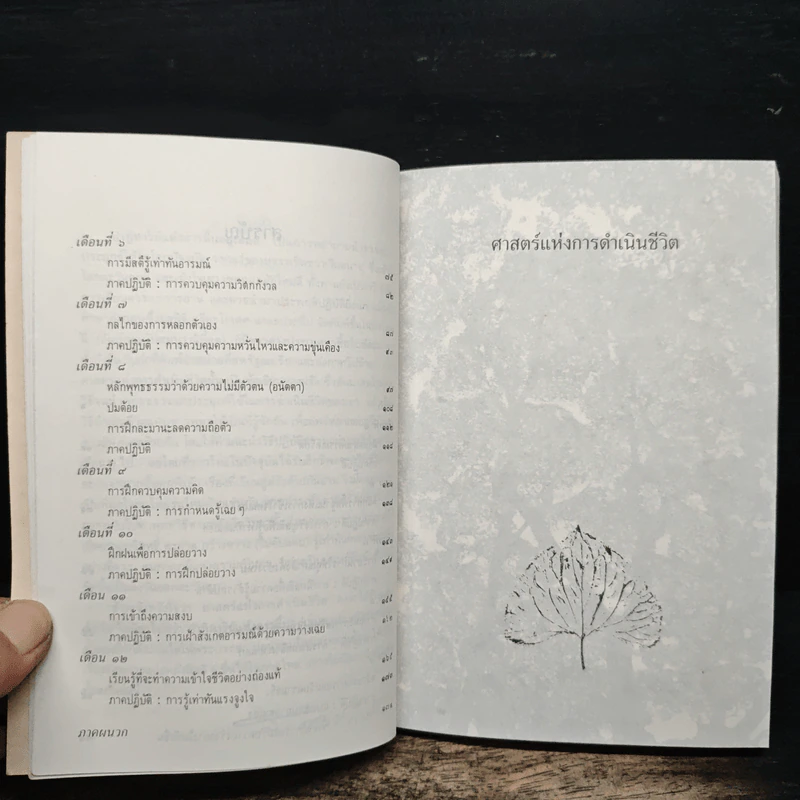 เดือนที่ ๖
การมีสติรู้เท่าทันอารมณ์ ๘๕
ภาคปฏิบัติ : การควบคุมความวิตกกังวล ๘๒
เดือนที่ ๗
กลไกของการหลอกตัวเอง ๘๗
ภาคปฏิบัติ : การควบคุมความหวั่นไหวและความขุ่นเคือง ๙๐
เดือนที่ ๘
หลักพุทธธรรมว่าด้วยความไม่มีตัวตน (อนัตตา) ๙๗
ปมด้อย ๑๐๘
การฝึกละมานะลดความถือตัว ๑๑๒
ภาคปฏิบัติ ๑๑๘
เดือนที่ ๙
การฝึกควบคุมความคิด ๑๒๑
ภาคปฏิบัติ : การกำหนดรู้เฉย ๆ ๑๓๘
เดือนที่ ๑๐
ฝึกฝนเพื่อการปล่อยวาง ๑๔๑
ภาคปฏิบัติ : การฝึกปล่อยวาง ๑๔๙
เดือน ๑๑
การเข้าถึงความสงบ
ภาคปฏิบัติ : การเฝ้าสังเกตอารมณ์ด้วยความวางเฉย
เดือน ๑๒
เรียนรู้ที่จะทำความเข้าใจชีวิตอย่างถ่องแท้ ๑๖๕
ภาคปฏิบัติ : การรู้เท่าทันแรงจูงใจ
ภาคผนวก
ศาสตร์แห่งการดำเนินชีวิต